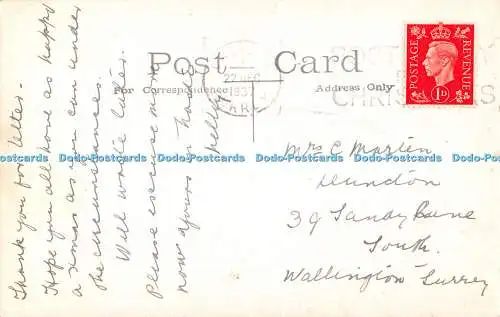 Post Card
For Correspondence
Address Only
22 DEC
1937
POSTAGE
REVENUE
1D
Thank you for letter.
Hope you all have as happy
a Xmas as you can under
the circumstances.
Will write later.
Please excuse more
now yours in haste
Nelly
Mrs C Marten
Dundon
39 Sandy Lane
South.
Wallington Surrey
Postcards www.postcards